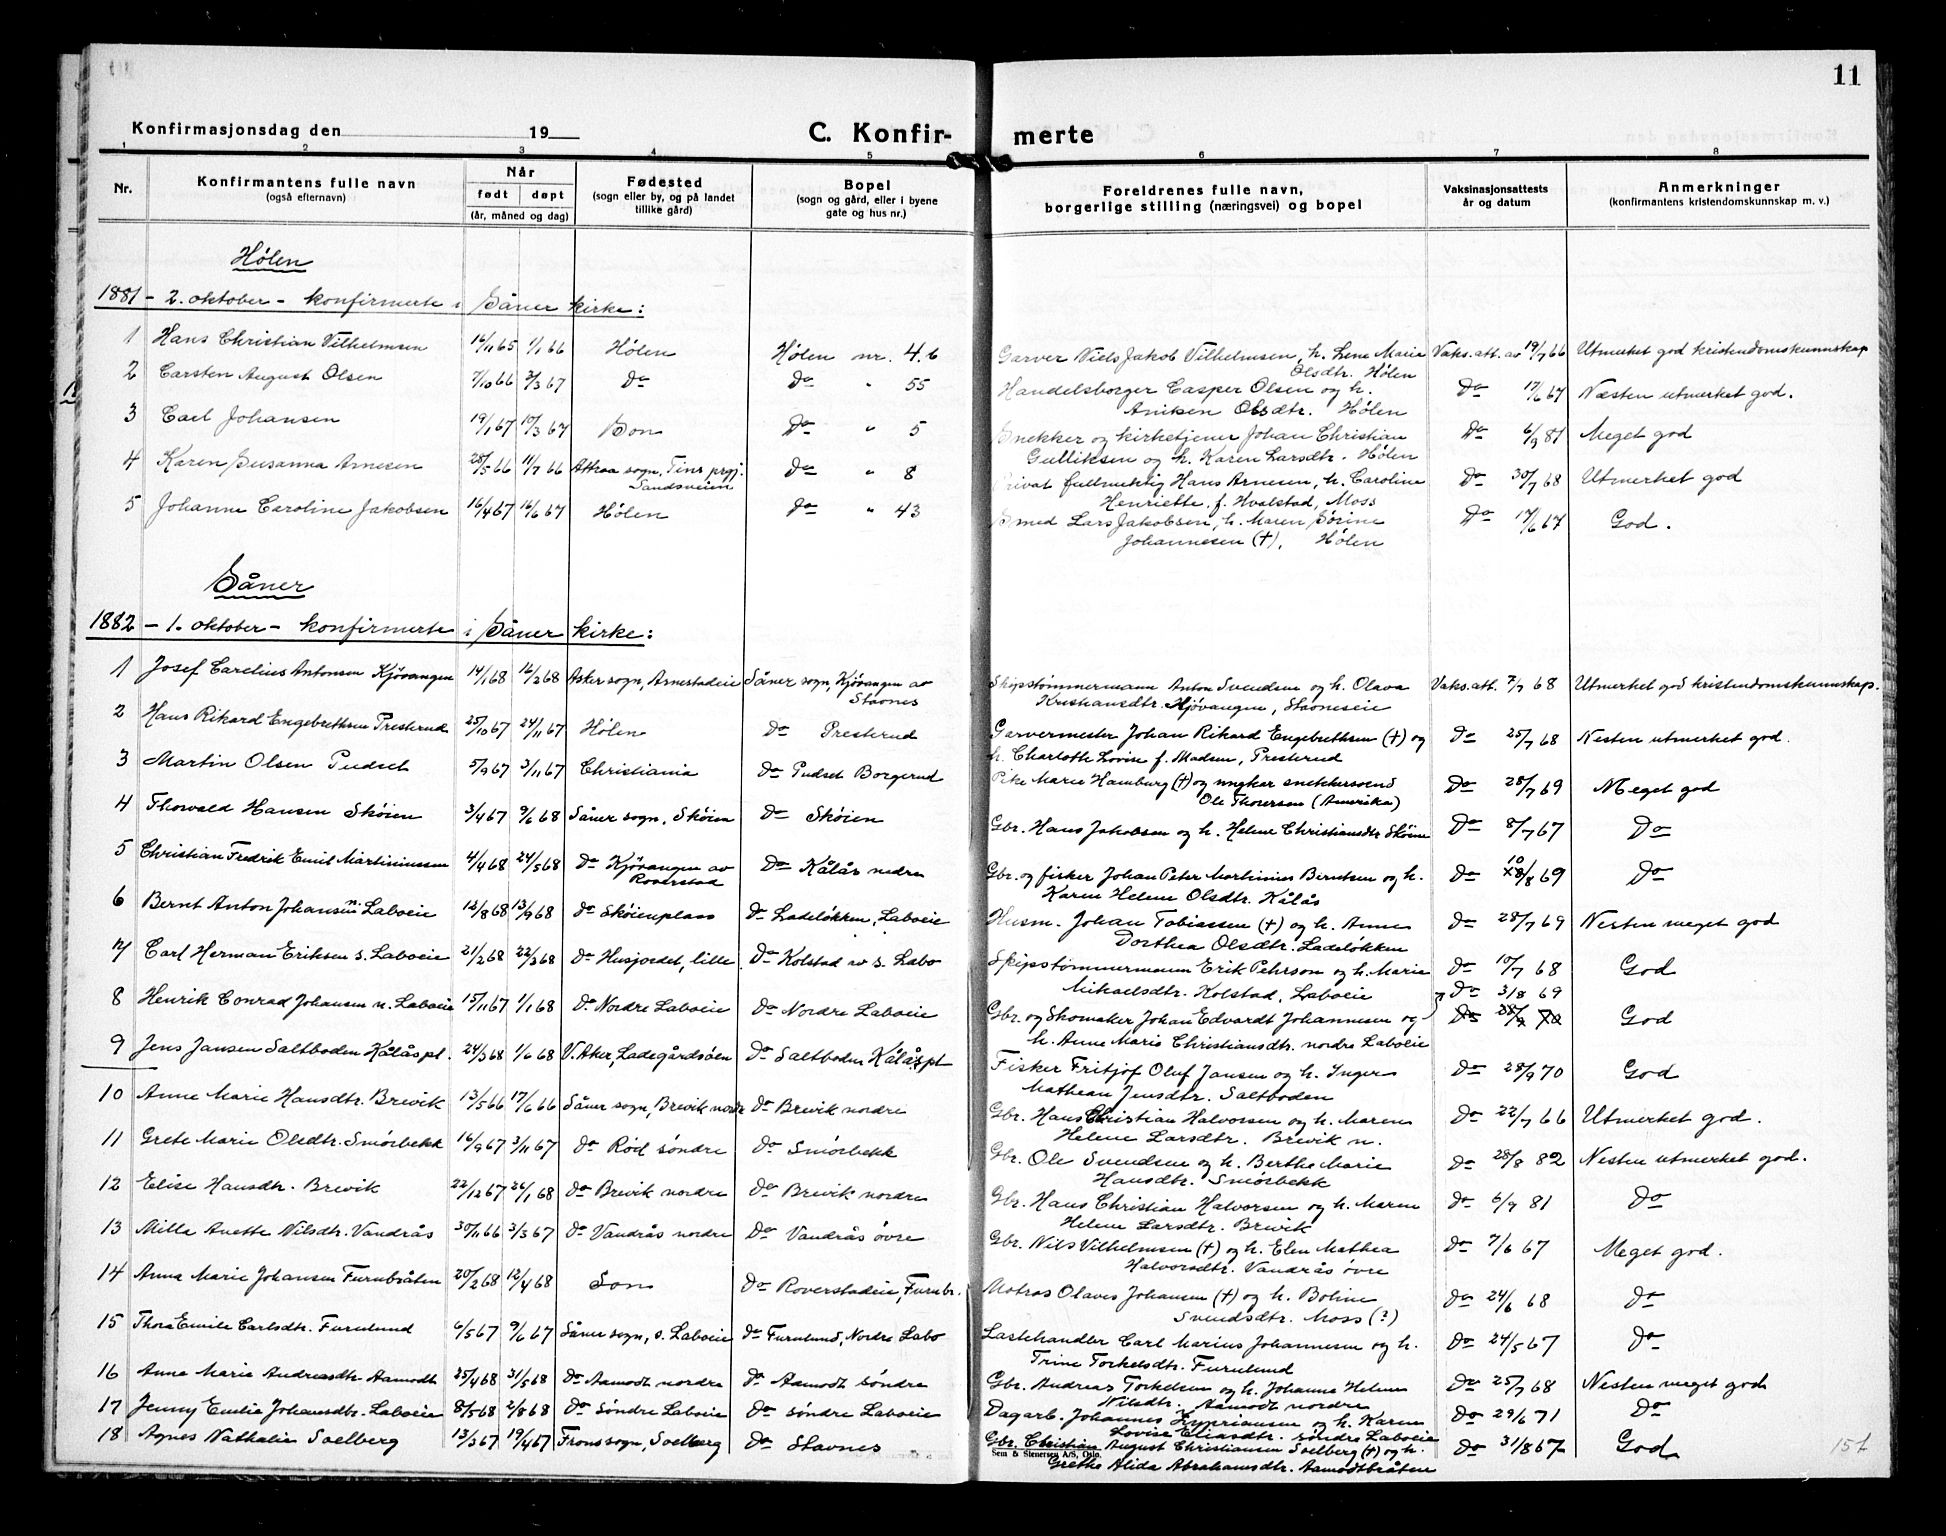 11
Konfirmasjonsdag den 19
C. Konfir- merte
1 2 3 4 5 6 7 8
Nr. Konfirmantens fulle navn (også efternavn) Når født døpt (år, måned og dag) Fødested (sogn eller by, og på landet tillike gård) Bopel (sogn og gård, eller i byene gate og hus nr.) Foreldrenes fulle navn, borgerlige stilling (næringsvei) og bopel Vaksinasjonsattests år og datum Anmerkninger (konfirmantens kristendomskunnskap m. v.)
Hølen
1881 - 2. oktober - konfirmerte i Såner kirke:
1 Hans Christian Vilhelmsen 16/11 65 1/1 66 Hølen Hølen nr. 46 Garver Niels Jakob Vilhelmsen, h. Lene Marie Vaks.att. av 19/7 66 Utmerket god kristendomskunnskap
Olsdtr. Hølen
2 Carsten August Olsen 7/10 66 3/3 67 Do Do " 55 Handelsborger Casper Olsen og h. Do 17/6 67 Næsten utmerket god.
Aniken Olsdtr. Hølen
3 Carl Johansen 19/1 67 10/3 67 Son Do " 5 Snekker og kirketjener Johan Christian Do 6/9 81 Meget god
Gulliksen og h. Karen Larsdtr. Hølen
4 Karen Susanna Arnesen 28/5 66 11/7 66 Attraa sogn, Tins prgj. Do " 8 Privat fullmektig Hans Arnesen, h. Caroline Do 30/7 68 Utmerket god
Sandsveien Henriette f. Hvalstad, Moss
5 Johanne Caroline Jakobsen 16/4 67 16/6 67 Hølen Do " 43 Smed Lars Jakobsen, h. Maren Sørine Do 17/6 67 God.
Johannesen (†), Hølen
Såner
1882 - 1. oktober - konfirmerte i Såner kirke:
1 Josef Carelius Antonsen Kjøvangen 14/1 68 16/2 68 Asker sogn, Arnestadeie Såner sogn, Kjøvangen av Skipstømmermann Anton Svendsen og h. Olava Vaks.att. 7/7 68 Utmerket god kristendomskunnskap.
Stavnes Kristiansdtr. Kjøvangen, Stavneseie
2 Hans Rikard Engebrethsen Presterud 25/10 67 24/11 67 Hølen Do Presterud Garvermester Johan Rikard Engebrethsen (†) og Do 25/7 68 Nesten utmerket god.
h. Charlotte Lovise f. Madsen, Presterud
3 Martin Olsen Pudset 5/9 67 3/11 67 Christiania Do Pudset Borgerud Pike Marie Hamburg (†) og ungkar snekkersvend Do 28/7 69 Meget god
Ole Thoresen (Amerika)
4 Thorvald Hansen Skøien 3/4 67 9/6 68 Såner sogn, Skøien Do Skøien Gbr. Hans Jakobsen og h. Helene Christiansdtr Skøien Do 8/7 67 Do
5 Christian Fredrik Emil Martiniussen 4/4 68 24/5 68 Do Kjøvangen av Do Kålås nedre Gbr. og fisker Johan Peter Martinius Berntsen og h. Do 10/8 69 Do
Roverstad Karen Helene Olsdtr. Kålås
6 Bernt Anton Johansen n. Laboeie 12/8 68 13/9 68 Do Skøienplass Do Ladeløkken, Laboeie Husm. Johan Tobiassen (†) og h. Anne Do 28/7 69 Nesten meget god
Dorthea Olsdtr. Ladeløkken
7 Carl Herman Eriksen s. Laboeie 21/2 68 22/3 68 Do Husjordet, lille Do Kolstad av s. Labo Skipstømmermann Erik Pehrson og h. Marie Do 10/7 68 God
Mikaelsdtr. Kolstad, Laboeie Do 31/8 69
8 Henrik Conrad Johansen n. Laboeie 15/11 67 1/1 68 Do Nordre Laboeie Do Nordre Laboeie Gbr. og Skomaker Johan Edvardt Johannesen og Do 28/9 70 God
h. Anne Marie Christiansdtr. nordre Laboeie
9 Jens Jansen Saltboden Kålåspl. 24/3 68 1/6 68 V. Aker, Ladegårdsøen Do Saltboden Kålåspl Fisker Fritjof Oluf Jansen og h. Inger Do 28/9 70 God
Mathea Jensdtr. Saltboden
10 Anne Marie Hansdtr. Brevik 13/5 66 17/6 66 Såner sogn, Brevik nordr. Do Brevik nordre Gbr. Hans Christian Halvorsen og h. Maren Do 22/7 66 Utmerket god.
Helene Larsdtr. Brevik n.
11 Grete Marie Olsdtr. Smørbekk 16/9 67 3/11 67 Do Rød søndre Do Smørbekk Gbr. Ole Svendsen og h. Berthe Marie Do 28/8 82 Nesten utmerket god.
Hansdtr. Smørbekk
12 Elise Hansdtr. Brevik 22/12 67 26/1 68 Do Brevik nordre Do Brevik nordre Gbr. Hans Christian Halvorsen og h. Maren Do 6/9 81 Do
Helene Larsdtr. Brevik
13 Milla Anette Nilsdtr. Vandrås 30/11 66 3/3 67 Do Vandrås nordre Do Vandrås øvre Gbr. Nils Vilhelmsen (†) og h. Elen Mathea Do 7/6 67 Meget god.
Halvorsdtr. Vandrås øvre
14 Anna Marie Johansen Furubråten 20/2 68 12/4 68 Son Do Roverstadeie, Furubr. Matros Olaves Johansen (†) og h. Boline Do 24/6 68 Do
Svendsdtr. Moss (?)
15 Thora Emilie Carlsdtr. Furulund 6/5 67 9/6 67 Såner sogn, s. Laboeie Do Furulund, Nordre Labo Lastehandler Carl Marius Johannesen og h. Do 24/5 67 Do
Trine Torkelsdtr. Furulund
16 Anne Marie Andreasdtr. Aamodt 25/4 68 31/5 68 Do Aamodt nordre Do Aamodt søndre Gbr. Andreas Torkelsen og h. Johanne Helene Do 25/7 68 Nesten meget god
Nilsdtr. Aamodt nordre
17 Jenny Emilie Johansdtr. Laboeie 8/5 68 2/8 68 Do Søndre Laboeie Do Søndre Laboeie Dagarb. Johannes Zypriansen og h. Karen Do 29/6 71 Do
Lovise Eliasdtr. søndre Laboeie
18 Agnes Nathalie Solberg 13/3 67 19/4 67 Frons sogn, Solberg Do Stavnes Gbr. Christian August Christiansen Solberg (†) og h. Do 31/8 67 God 15f
Sem & Stenersen A/S, Oslo.
Grethe Alida Abrahamsdtr. Aamodtbråten